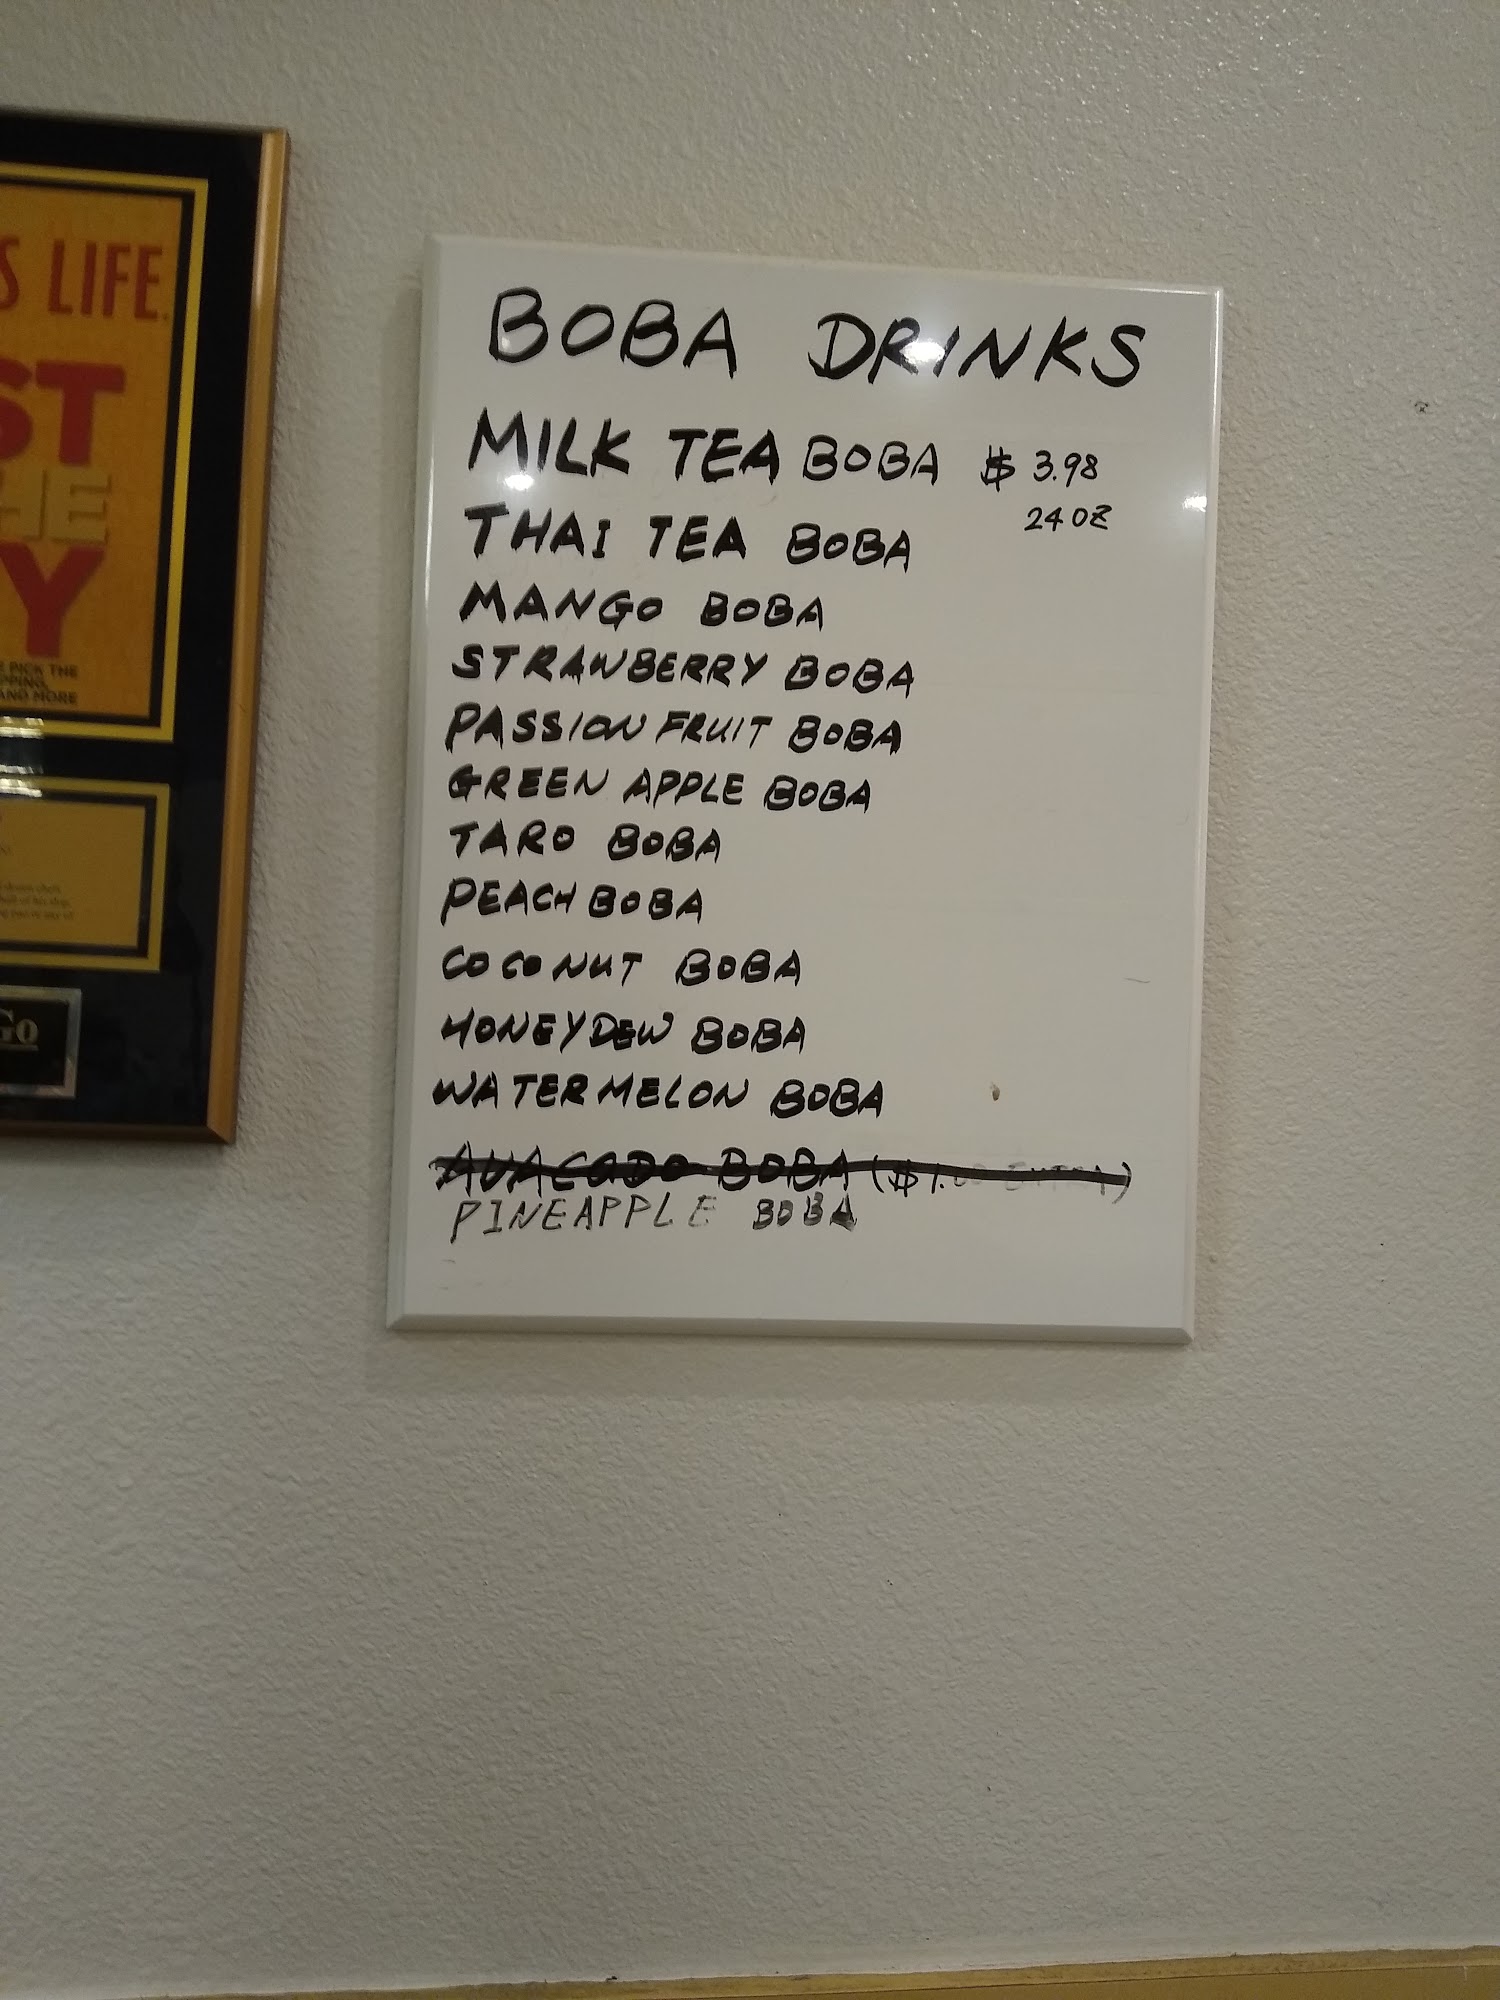 S LIFE.
ST
HE
Y
E PICK THE
PPING,
AND MORE
Go
BOBA DRINKS
MILK TEA BOBA $ 3.98
24 OZ
THAI TEA BOBA
MANGO BOBA
STRAWBERRY BOBA
PASSION FRUIT BOBA
GREEN APPLE BOBA
TARO BOBA
PEACH BOBA
COCONUT BOBA
HONEYDEW BOBA
WATERMELON BOBA
AVACADO BOBA ($1.00 EXTRA)
PINEAPPLE BOBA